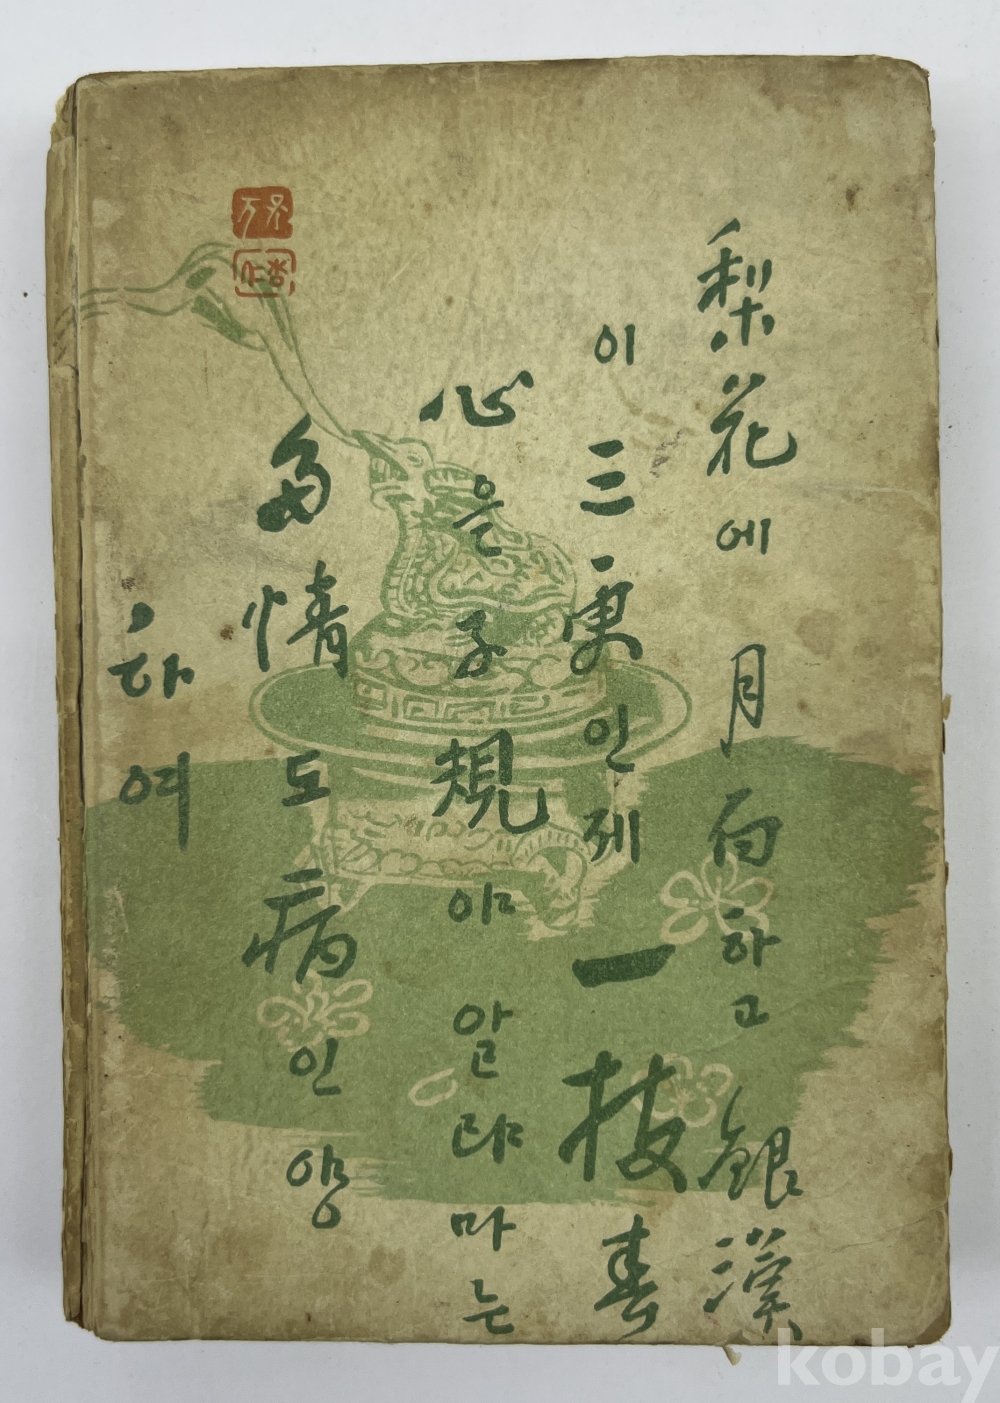 梨花에 月白하고 銀漢
이 三更인제 一枝春
心은 子規야 알랴마는
多情도 病인양
하여
kobay